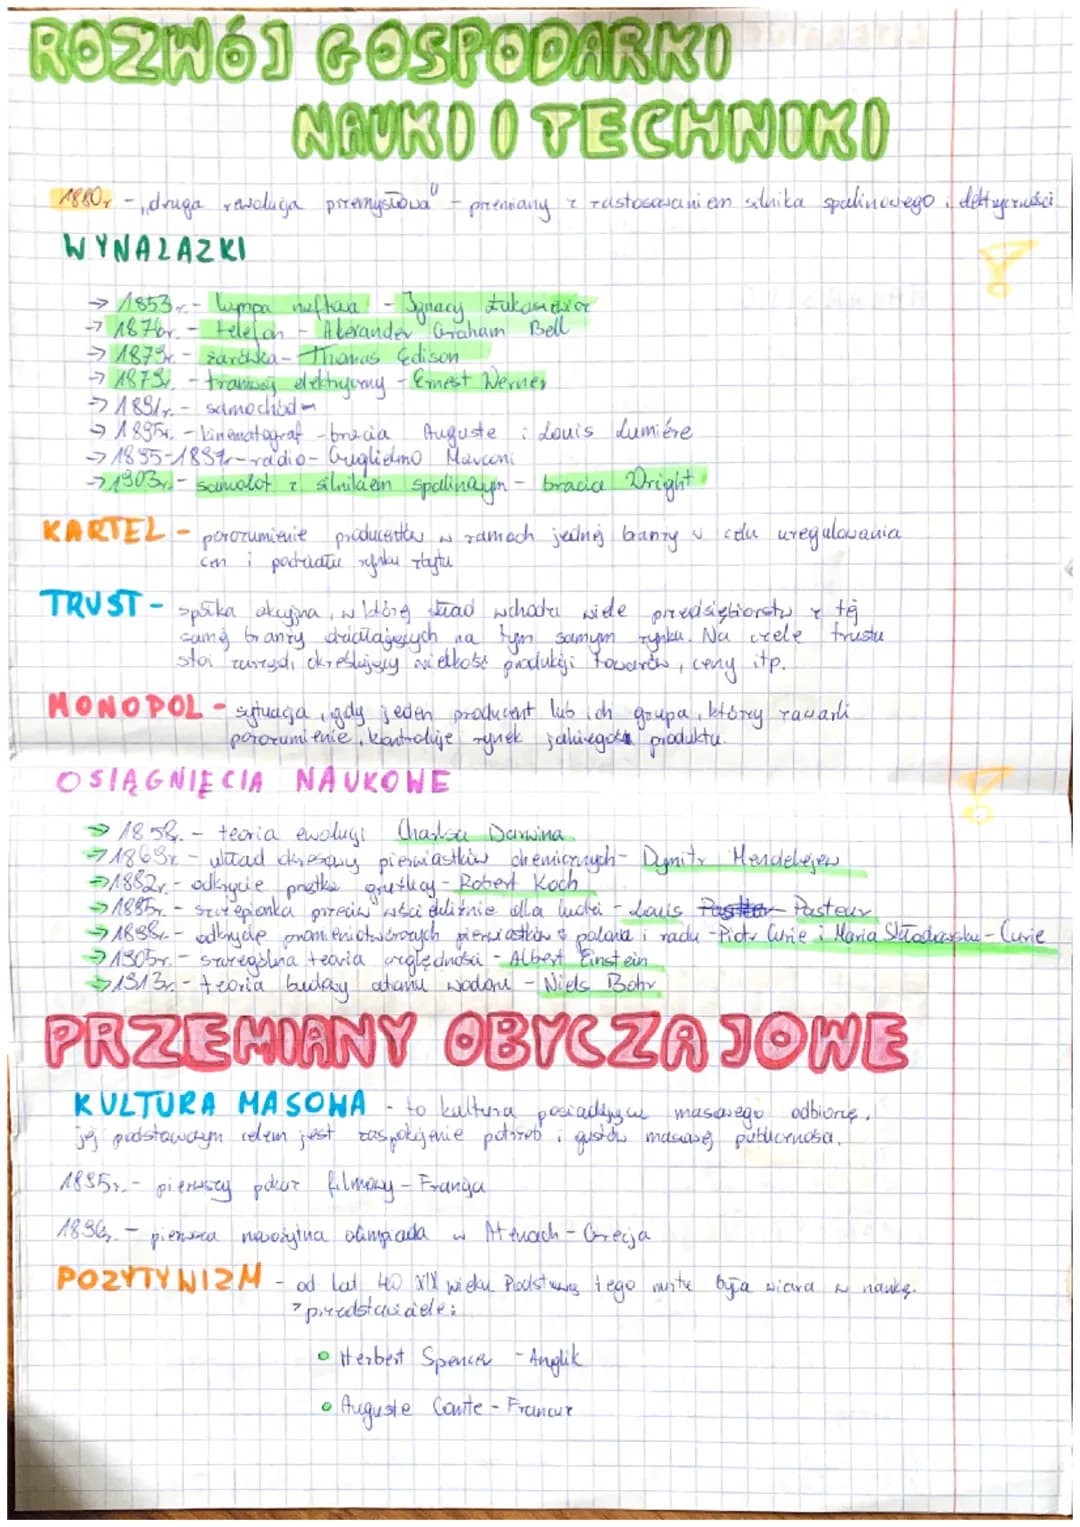 ROZWÓJ GOSPODARKI
NAUKI I TECHNIKI
1880r. - „druga rewolucja przemysłowa" - przemiany z zastosowaniem silnika spalinowego i elektryczności
WYNALAZKI
→ 1853r. - lampa naftowa - Ignacy Łukasiewicz
→ 1876r. - telefon - Alexander Graham Bell
→ 1879r. - żarówka - Thomas Edison
→ 1879r. - tramwaj elektryczny - Ernest Werner
→ 1891r. - samochód -
→ 1895r. - kinematograf - bracia Auguste i Louis Lumiére
→ 1895-1897r - radio - Guglielmo Marconi
→ 1903r. - samolot z silnikiem spalinowym - bracia Wright
KARTEL - porozumienie producentów w ramach jednej branży w celu uregulowania
cen i podziału rynku zbytu
TRUST - spółka akcyjna, w której skład wchodzi wiele przedsiębiorstw z tej
samej branży działających na tym samym rynku. Na czele trustu
stoi zarząd, określający wielkość produkcji towarów, ceny itp.
MONOPOL - sytuacja, gdy jeden producent lub ich grupa, którzy zawarli
porozumienie, kontroluje rynek jakiegoś produktu.
OSIĄGNIĘCIA NAUKOWE
→ 1858r. - teoria ewolucji Charlsa Darwina
→ 1869r - układ okresowy pierwiastków chemicznych - Dymitr Mendelejew
→ 1882r. - odkrycie prątka gruźlicy - Robert Koch
→ 1885r. - szczepionka przeciw wściekliźnie dla ludzi - Louis Pasteur
→ 1898r. - odkrycie promieniotwórczych pierwiastków polonu i radu - Piotr Curie i Maria Skłodowska - Curie
→ 1905r. - szczególna teoria względności - Albert Einstein
→ 1913r. - teoria budowy atomu wodoru - Niels Bohr
PRZEMIANY OBYCZAJOWE
KULTURA MASOWA - to kultura posiadająca masowego odbiorcę,
jej podstawowym celem jest zaspokojenie potrzeb i gustów masowej publiczności.
1895r. - pierwszy pokaz filmowy - Francja
1896r. - pierwsza nowożytna olimpiada w Atenach - Grecja
POZYTYWIZM - od lat 40 XIX wieku Podstawą tego nurtu była wiara w naukę.
przedstawiciele:
Herbert Spencer - Anglik
Auguste Comte - Francuz